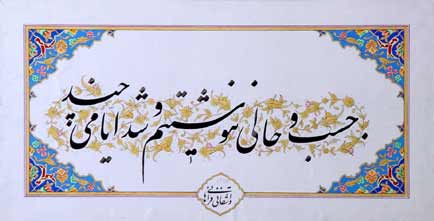 حسب و حالی ننوشتیم و شد ایامی چند